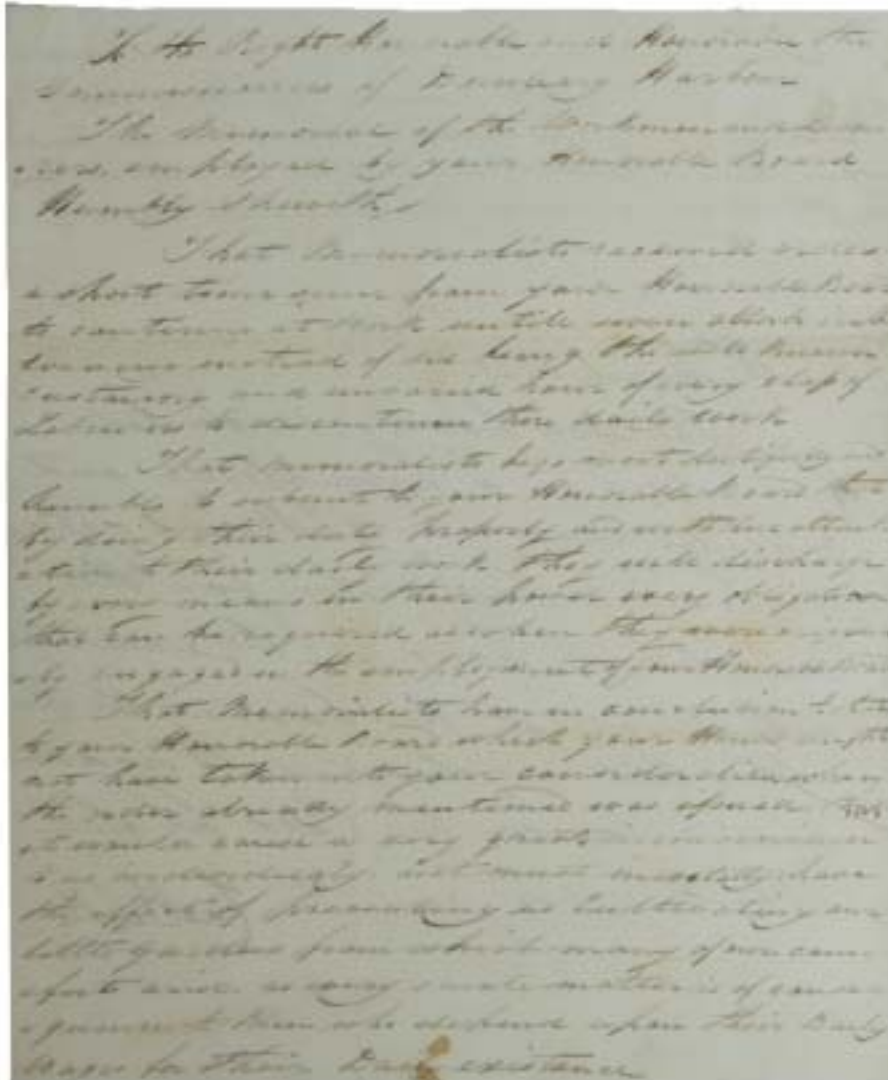 To the Right Honorable and Honorable the
Commissioners of Harbour
The Memorial of the Workmen and
employed by your Honorable Board
Humbly Sheweth,
That Memorialists received orders
a short time since from your Honorable Board
to continue at work untill seven oClock in the
evening instead of six being the well known
customary and hour of every class of
Labourers to discontinue their daily work
That Memorialists beg most
humbly to submit to your Honorable Board that
by doing their duty properly and with
to their daily work they will discharge
by means in their power every obligation
that can be required as when they were
engaged in the employment of your Honorable Board
That Memorialists have in conclusion to
to your Honorable Board which your Honors might
not have taken into your consideration when
the order already mentioned was issued that
it would cause a very great inconvenience
to us and must have
the effect of preventing us cultivating our
little gardens from which many of our com
forts arise a very matter of conse
quence to men who depend upon their Daily
Wages for their Daily existence